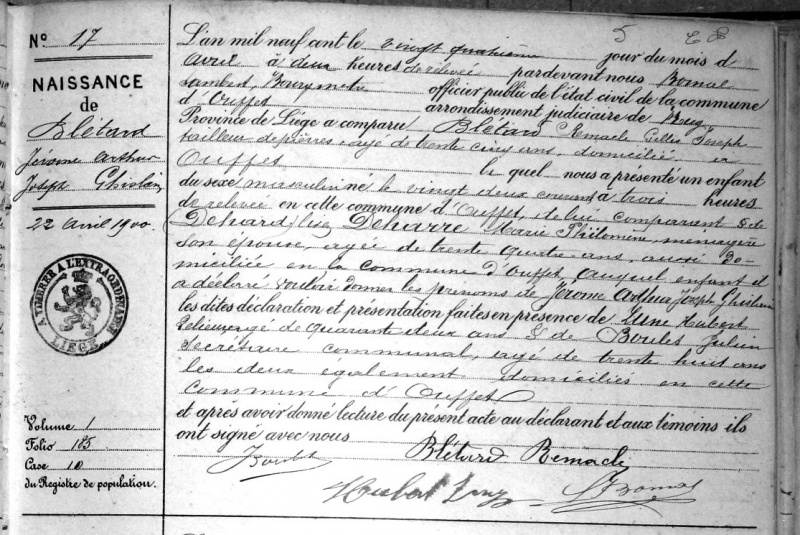 5
N° 17
NAISSANCE
de
Blétard
Jérôme Arthur
Joseph Ghislain
22 avril 1900.
A TIMBRER A L'EXTRAORDINAIRE
LIÈGE
Volume 1
Folio 185
Case 10
du Registre de population.
L'an mil neuf cent le vingt quatrième jour du mois d
avril à deux heures de relevée pardevant nous Bomal
Lambert, Bourgmestre officier public de l'état civil de la commune
d'Ouffet arrondissement judiciaire de Huy
Province de Liége a comparu Blétard Remacle Gilles Joseph
tailleur de pierres, âgé de trente cinq ans, domicilié à
Ouffet le quel nous a présenté un enfant
du sexe masculin né le vingt deux courant à trois heures
de relevée en cette commune d'Ouffet, de lui comparant & de
(Dehard) lisez Deharre Marie Philomène, ménagère
son épouse, âgée de trente quatre ans, aussi do-
miciliée en la commune d'Ouffet, auquel enfant il
a déclaré vouloir donner les prénoms de Jérôme Arthur Joseph Ghislain
les dites déclaration et présentation faites en présence de Hubert
âgé de quarante deux ans & de Boulet Julien
Secrétaire communal, âgé de trente huit ans
les deux également domiciliés en cette
commune d'Ouffet
et après avoir donné lecture du présent acte au déclarant et aux témoins ils
ont signé avec nous
Boulet Blétard Remacle
Hubert L Bomal